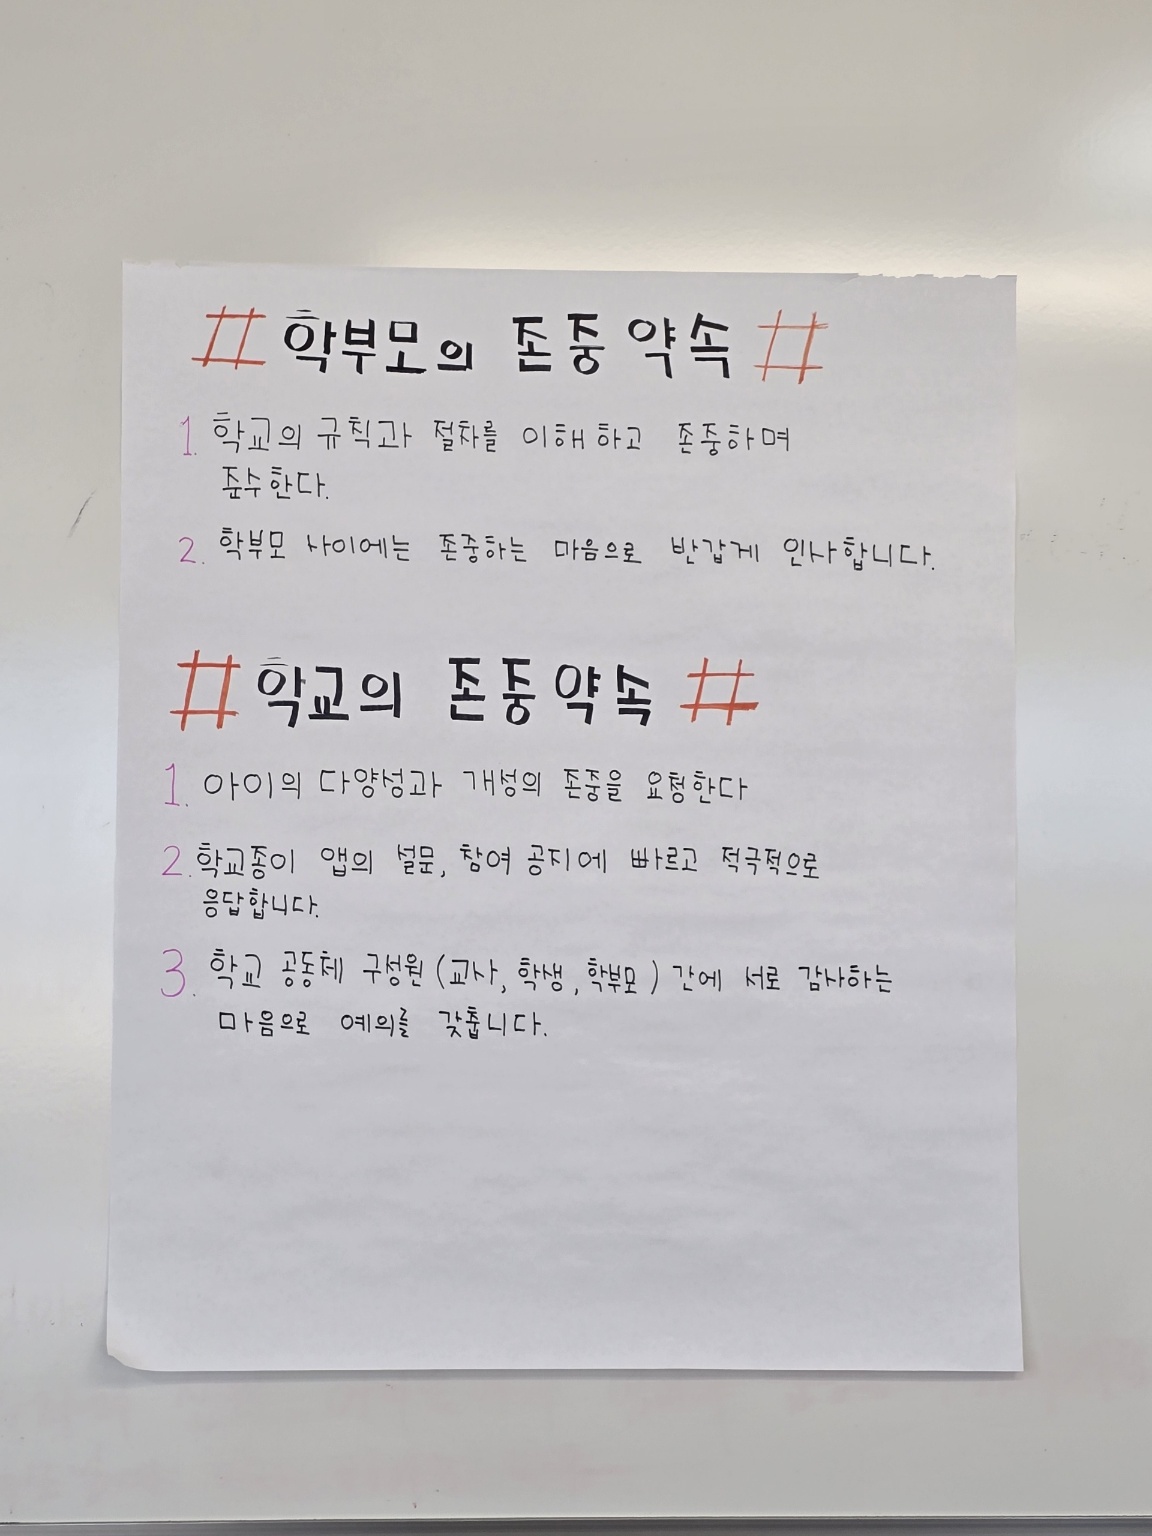 # 학부모의 존중 약속 #
1. 학교의 규칙과 절차를 이해하고 존중하며
준수한다.
2. 학부모 사이에는 존중하는 마음으로 반갑게 인사합니다.
# 학교의 존중약속 #
1. 아이의 다양성과 개성의 존중을 요청한다
2. 학교종이 앱의 설문, 참여 공지에 빠르고 적극적으로
응답합니다.
3. 학교 공동체 구성원 (교사, 학생, 학부모) 간에 서로 감사하는
마음으로 예의를 갖춥니다.